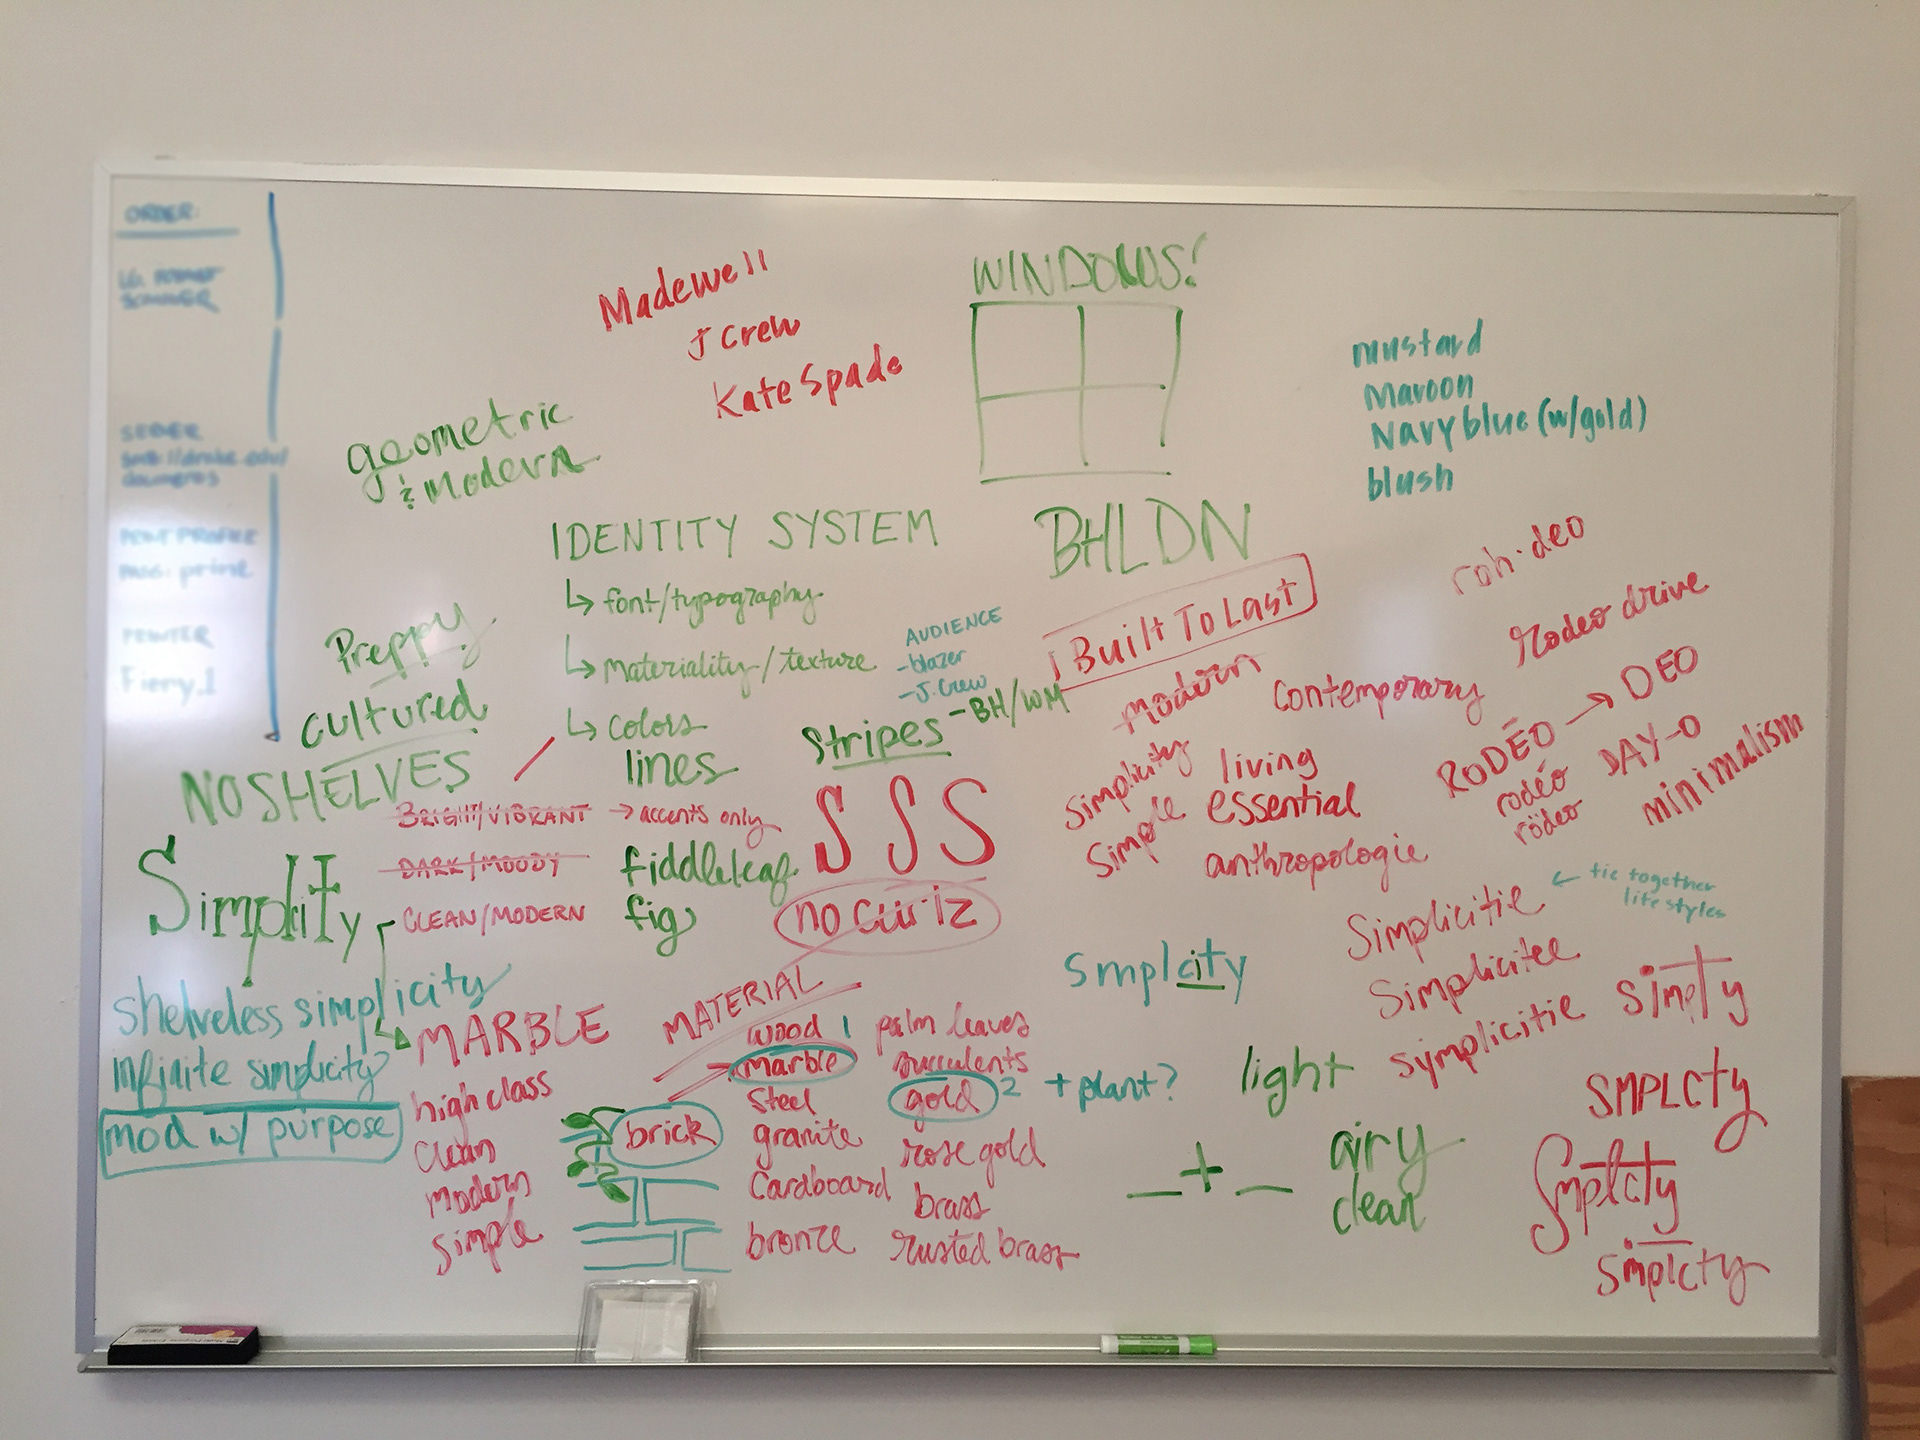 ORDER:
LG. FORMAT
SCANNER
SERVER
smb://drake.edu/
documents
PRINT PROFILE
PRINTER
Fiery_1
Madewell
J Crew
Kate Spade
WINDOWS!
mustard
Maroon
Navy blue (w/gold)
blush
geometric
& modern
IDENTITY SYSTEM
↳ font/typography
↳ materiality/texture
↳ colors
BHLDN
Built To Last
AUDIENCE
- blazer
- J. Crew
- BH/WM
roh·deo
Rodeo drive
RODĒO → DEO
rodéo DAY-O
rödeo
minimalism
Preppy
cultured
NO SHELVES
lines
Stripes
modern
contemporary
simplicity
simple
living
essential
anthropologie
BRIGHT/VIBRANT → accents only
DARK/MOODY
CLEAN/MODERN
fiddleleaf
fig
S S S
no curiz
Simplicity
shelveless simplicity
infinite simplicity
mod w/ purpose
MARBLE
high class
clean
modern
simple
MATERIAL
wood 1
marble
steel
granite
cardboard
bronze
brick
palm leaves
succulents
gold 2
rose gold
brass
rusted brass
+ plant?
smplcity
Simplicitie ← tie together
life styles
Simplicitee
symplicitie
simpty
light
airy
clean
_+_
SMPLCTY
Smplcty
simplcty